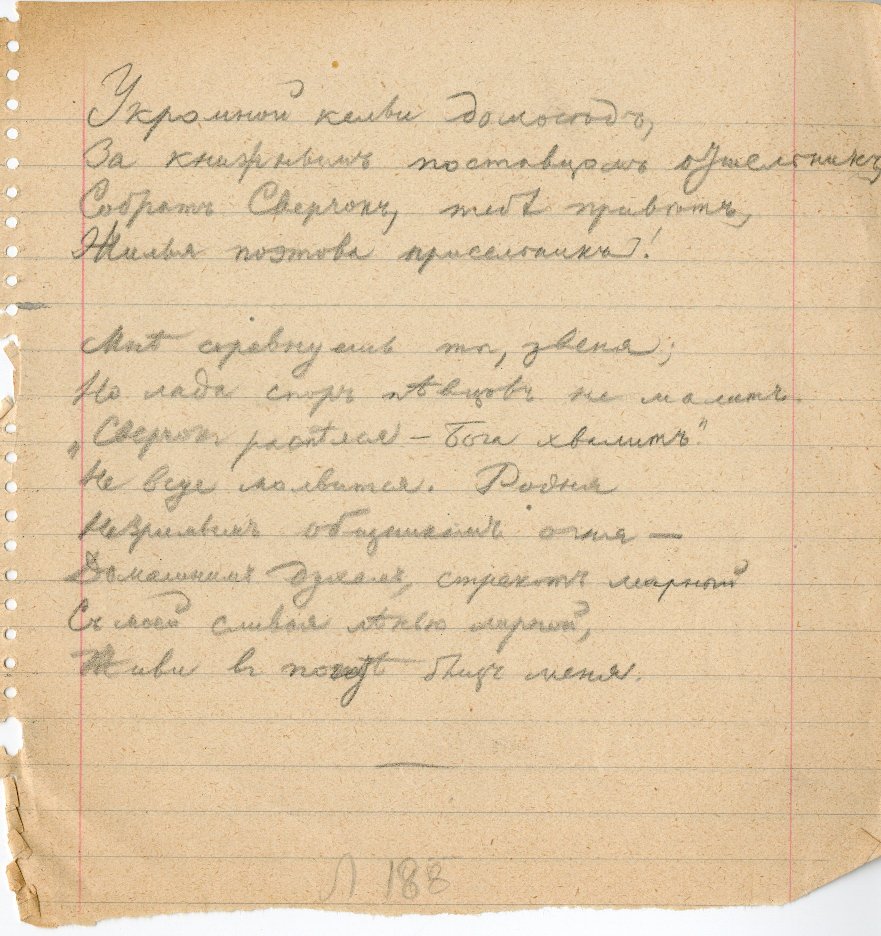 Укромной кельи домосѣдъ,
За книжнымъ поставцомъ отшельникъ,
Собратъ Сверчокъ, тебѣ привѣтъ,
Жилья поэтова присельникъ!
Мнѣ соревнуешь ты, звеня;
Но лада споръ пѣвцовъ не малитъ.
„Сверчокъ распѣлся – Бога хвалитъ"
Не всуе молвится. Родня
Незримымъ обаянникамъ огня —
Домашнимъ духамъ, стрекотъ мирный
Съ моей сливая лѣнью лирной,
Живи въ почетѣ близъ меня.
Л 188